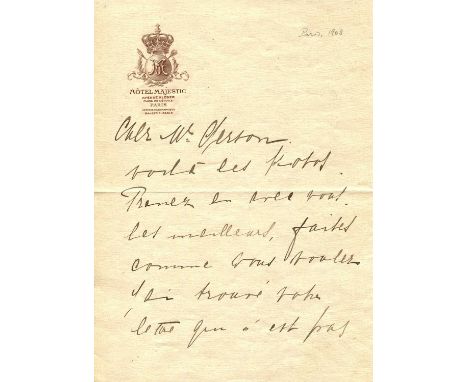 Paris, 1908
HÔTEL MAJESTIC
PARIS
Cher Mr Gerson.
voilà les fotos.
Prenez en avec vous.
les meilleurs, faites
comme vous voulez
j'ai trouvé votre
lettre qui n'est pas